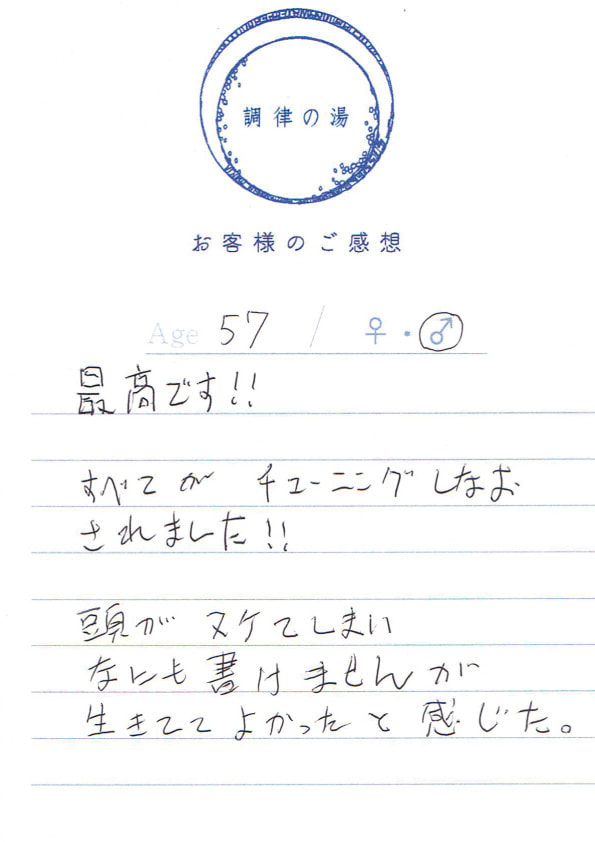 調律の湯
お客様のご感想
Age 57 / ♀・♂
最高です!!
すべてが チューニングしなお
されました!!
頭が ヌケてしまい
なにも書けませんが
生きててよかったと感じた。